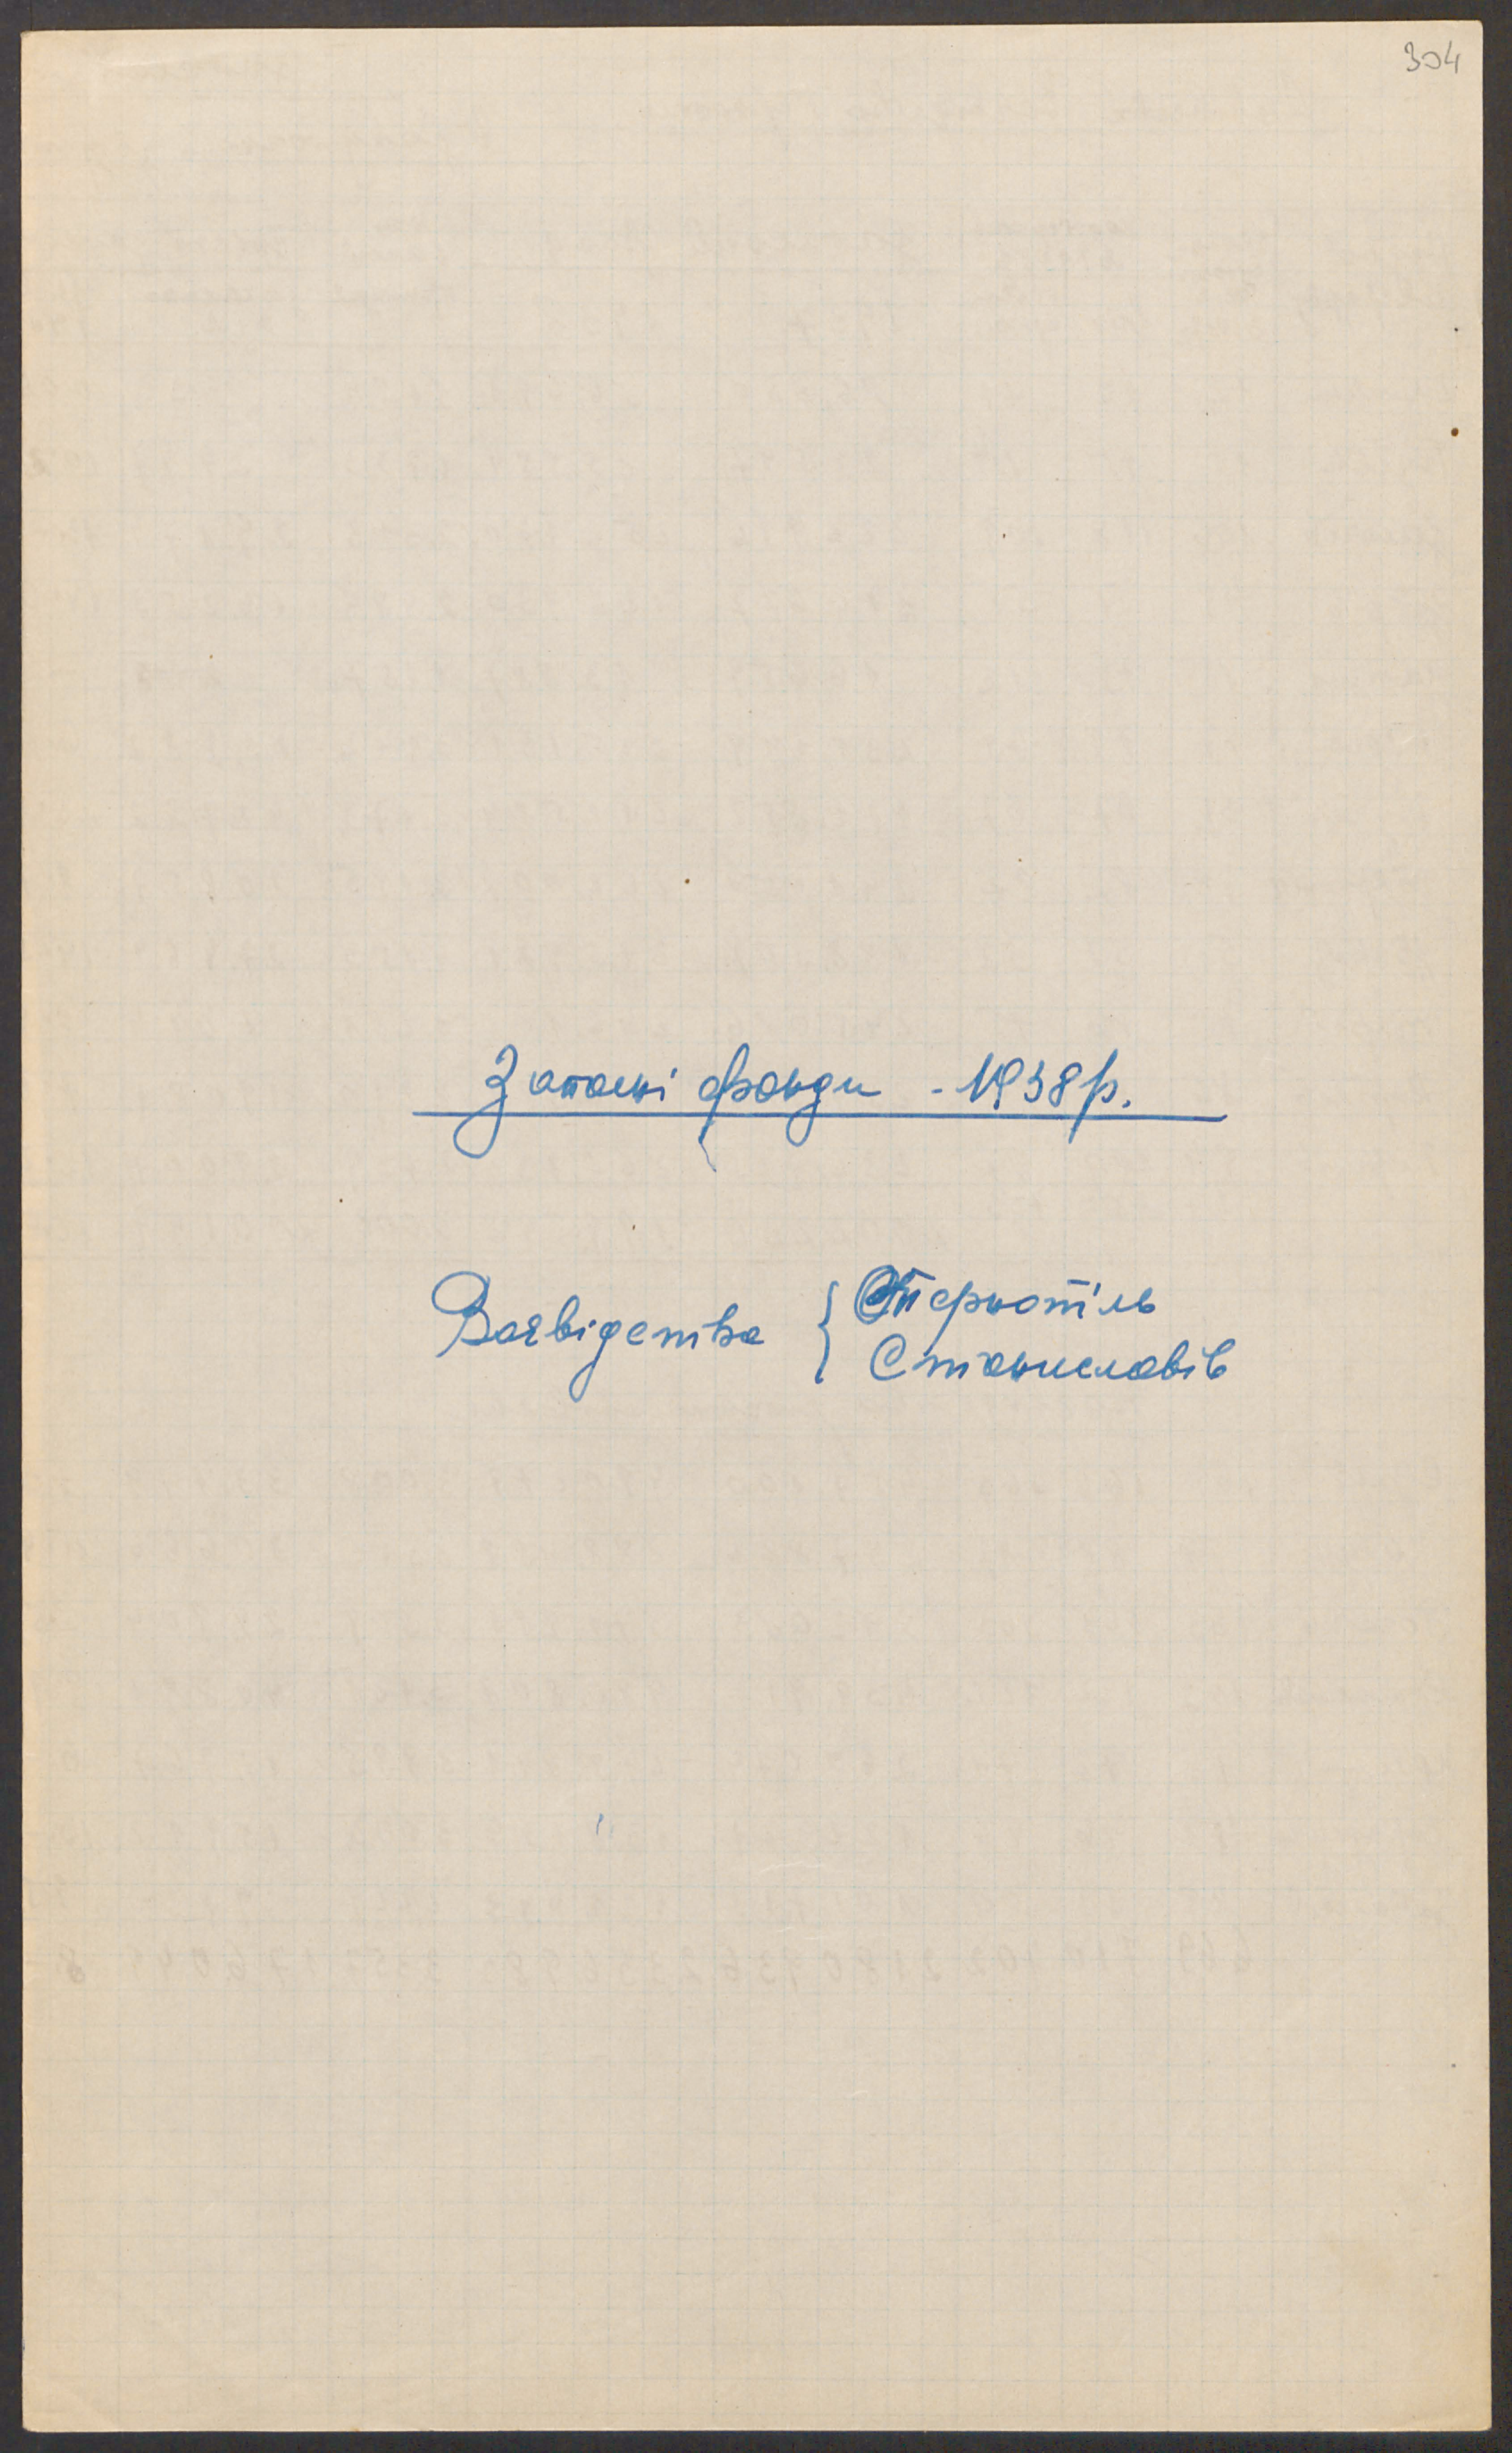 304
Запасні фонди - 1938 р.
Воєвідства { Тернопіль
Станиславів